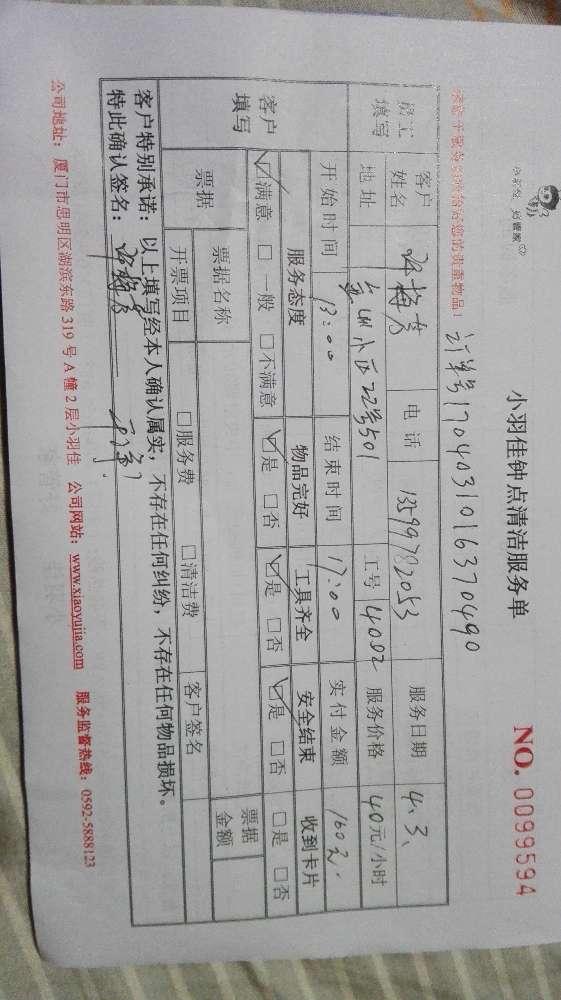 小羽佳钟点清洁服务单
NO. 0099594
订单号1704031016370490
员工填写 客户姓名 电话 13599782053 服务日期 4.3、
地址 金山小区22号501 工号 4092 服务价格 40元/小时
开始时间 13:00 结束时间 17:00 实付金额 160元
客户填写 服务态度 物品完好 工具齐全 安全结束 收到卡片
☑满意 □一般 □不满意 ☑是 □否 ☑是 □否 ☑是 □否 □是 □否
票据 票据名称 票据金额
开票项目 □服务费 □清洁费 客户签名
客户特别承诺：以上填写经本人确认属实，不存在任何纠纷，不存在任何物品损坏。
特此确认签名：
公司地址：厦门市思明区湖滨东路 319 号 A 幢 2 层小羽佳 公司网站：www.xiaoyujia.com 服务监督热线：0592-5888123